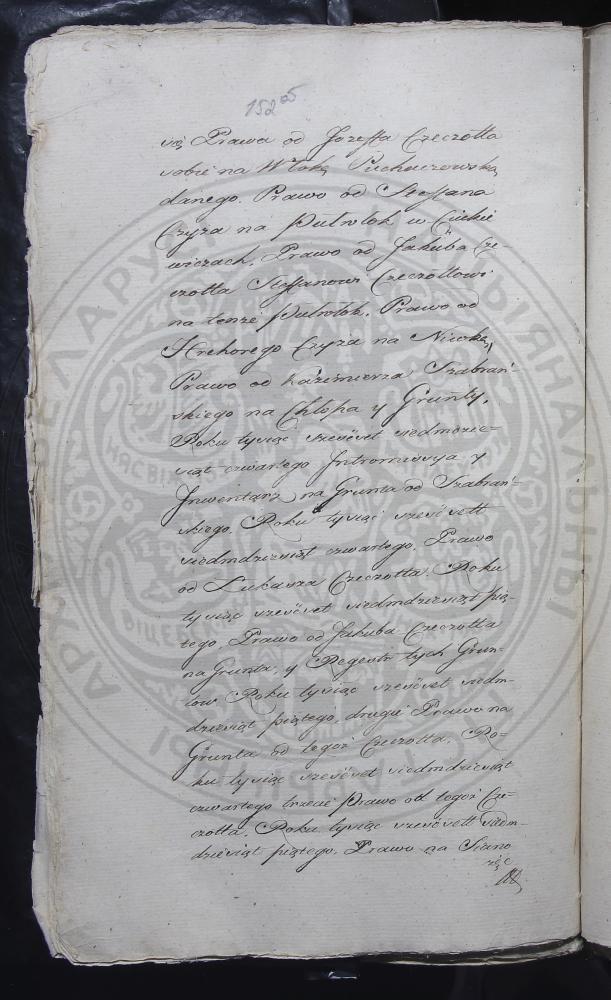 152 05
się Prawa od Jozeffa Czeczotta
sobie na Włokę Puchaczowską
danego. Prawo od Steffana
Czyża na Pułwłok w Cickie
wiczach, Prawo od Jakuba Cze-
czotta Steffanowi Czeczottowi
na tenże Pułwłok, Prawo od
Hrehorego Czyża na Niwkę,
Prawo od Kazimierza Szabrań-
skiego na Chłopa y Grunty,
Roku tysiąc szesset siedmdzie-
siąt czwartego Intromissyja y
Inwentarz na Grunta od Szabrań-
skiego, Roku tysiąc szessett
siedmdziesiąt czwartego, Prawo
od Łukasza Czeczotta, Roku
tysiąc szesset siedmdziesiąt pią-
tego, Prawo od Jakuba Czeczotta
na Grunta, y Regestr tych Grun-
tow Roku tysiąc szesset siedm-
dziesiąt piątego, drugie Prawo na
Grunta od tegoż Czeczotta, Ro-
ku tysiąc szesset siedmdziesiąt
czwartego trzecie Prawo od tegoż Cze-
czotta, Roku tysiąc szessett siedm-
dziesiąt piątego, Prawo na Siano
żęc